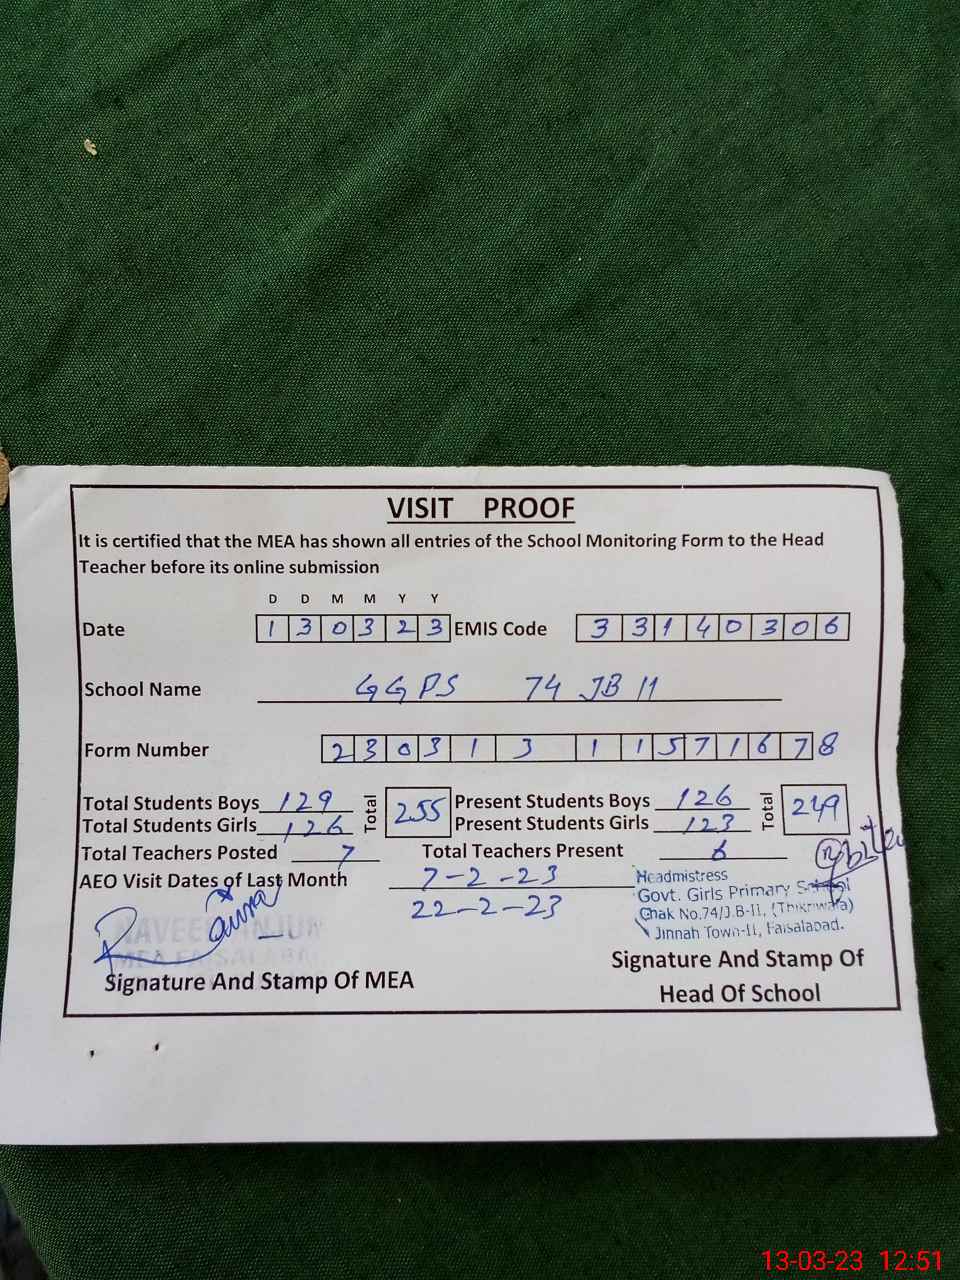 VISIT PROOF
It is certified that the MEA has shown all entries of the School Monitoring Form to the Head
Teacher before its online submission
D D M M Y Y
Date 1 3 0 3 2 3 EMIS Code 3 3 1 4 0 3 0 6
School Name GGPS 74 JB II
Form Number 2 3 0 3 1 3 1 1 5 7 1 6 7 8
Total Students Boys 129 Total 255 Present Students Boys 126 Total 249
Total Students Girls 126 Present Students Girls 123
Total Teachers Posted 7 Total Teachers Present 6
AEO Visit Dates of Last Month 7-2-23
22-2-23
Headmistress
Govt. Girls Primary School
Chak No.74/J.B-II, (Thikriwala)
Jinnah Town-II, Faisalabad.
MEA FAISALABAD
Signature And Stamp Of MEA
Signature And Stamp Of
Head Of School
13-03-23 12:51